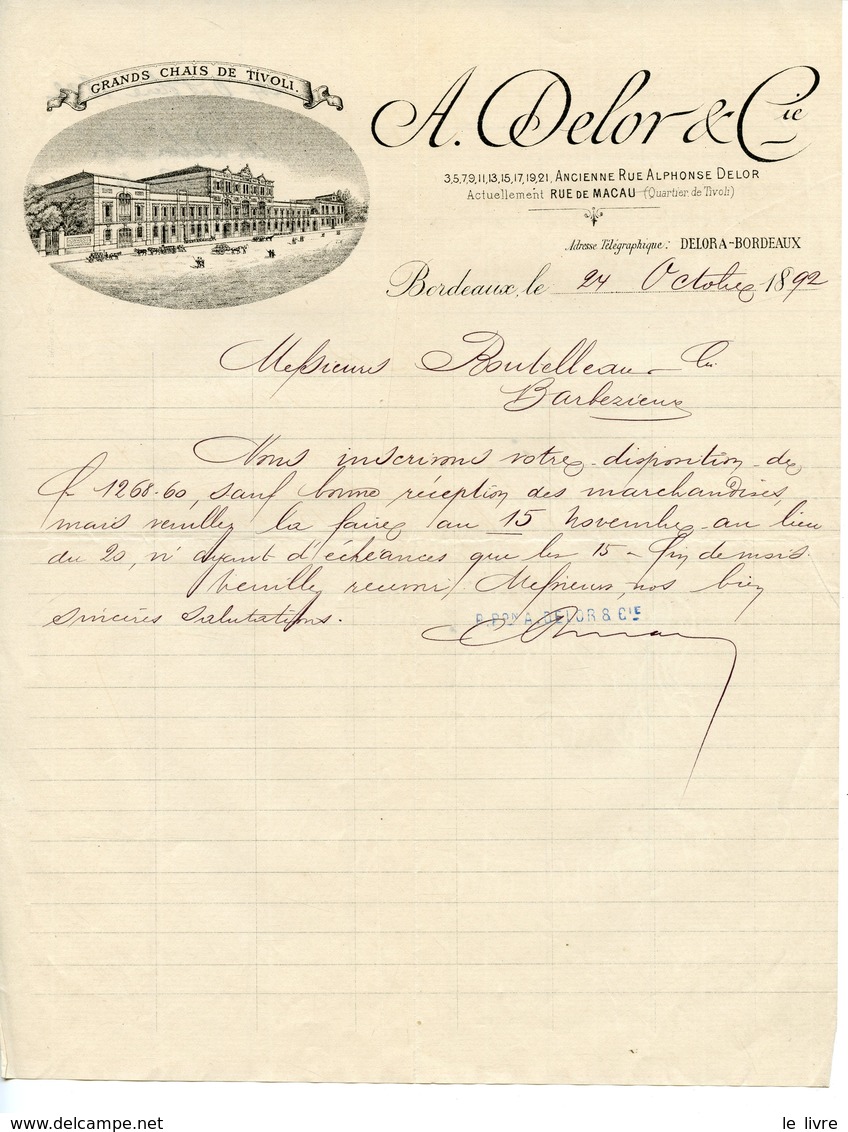 GRANDS CHAIS DE TIVOLI.
A. Delor & Cie
3,5,7,9,11,13,15,17,19,21, ANCIENNE RUE ALPHONSE DELOR
Actuellement RUE DE MACAU (Quartier de Tivoli)
Adresse Télégraphique: DELORA-BORDEAUX
Bordeaux, le 24 Octobre 1892
Messieurs Boutelleau
Barbezieux
Nous inscrivons votre disposition de
F 1268.60, sauf bonne réception des marchandises,
mais veuillez la faire au 15 novembre au lieu
du 20, n'ayant d'échéances que les 15 - fin de mois.
Veuillez recevoir, Messieurs, nos bien
sincères salutations.
P. PON A. DELOR & CIE
le livre